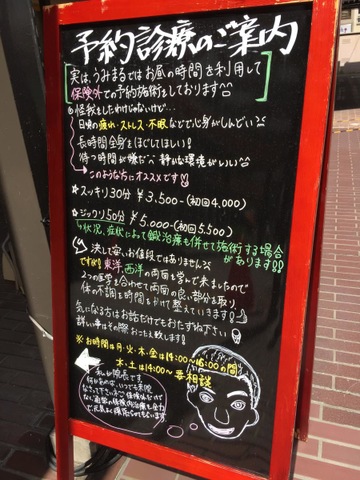 予約診療のご案内
実は、うみまるではお昼の時間を利用して
保険外での予約施術をしております
◎怪我をしたわけじゃないけど…
日頃の疲れ・ストレス・不眠などで心身がしんどい
長時間全身をほぐしてほしい!
待つ時間が嫌だ 静かな環境がいい
このような方にオススメです!!
★スッキリ30分 ¥3,500-(初回4,000)
☆ジックリ50分 ¥5,000-(初回5,500)
状況、症状によって鍼治療も併せて施術する場合
があります!!
決して安いお値段ではありません
ですが!!東洋、西洋の両面を学んで来ましたので
2つの医学を合わせて両面の良い部分を取り
体の不調を時間をかけて整えていきます!
気になる方はお話だけでもおたずね下さい
詳しい事はその際お こたえ致します!
※お時間は月・火・木・金は14:00〜16:00の間
水・土は14:00〜 要相談
私が院長です
何かあれば、いつでも来院
なさって下さい